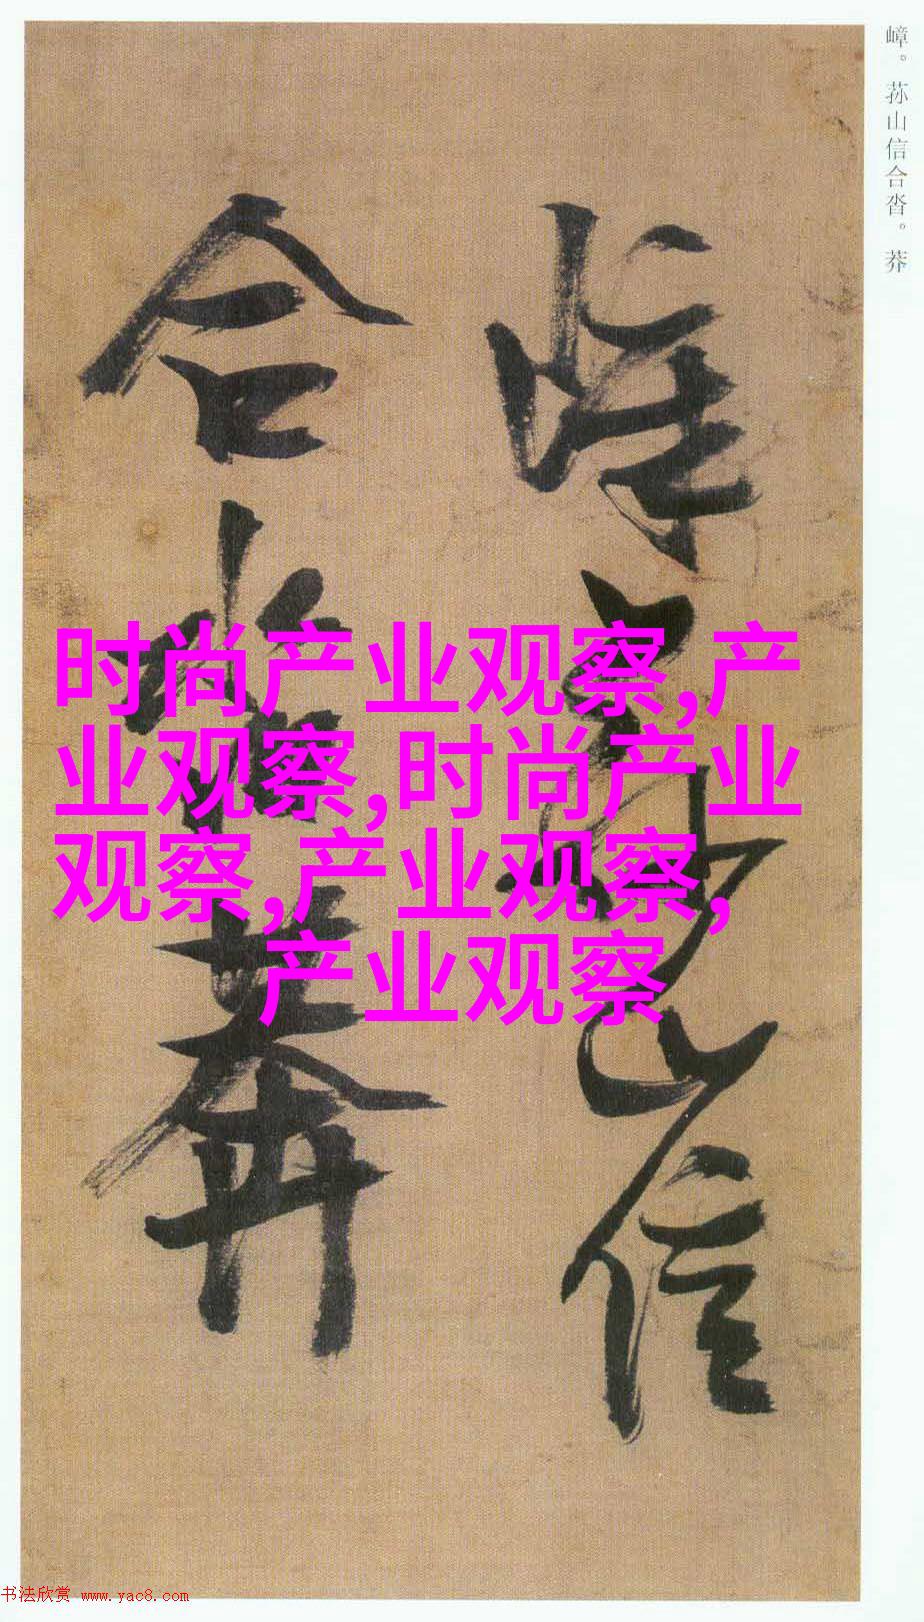 嶂。荪山信合沓。莽
嶂荪山信
合沓莽
时尚产业观察,产
业观察,时尚产业
观察,产业观察,
产业观察
书法欣赏 www.yac8.com